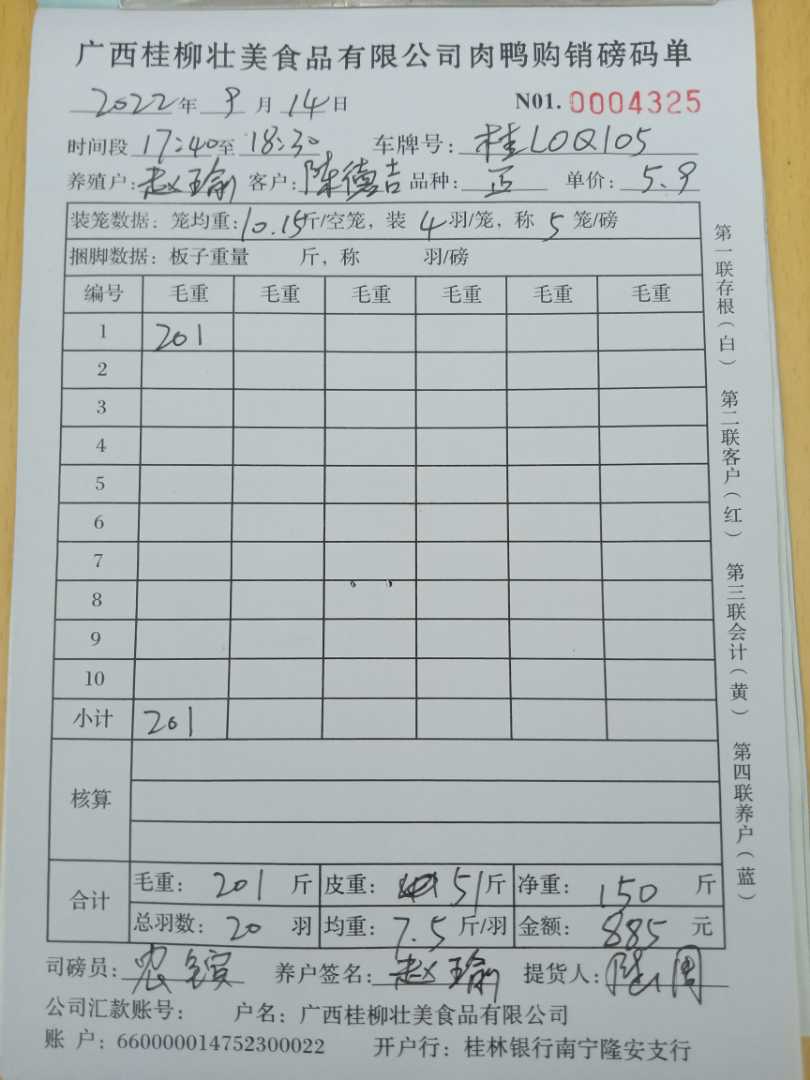 广西桂柳壮美食品有限公司肉鸭购销磅码单
2022年9月14日 N01. 0004325
时间段17:40至18:30 车牌号:桂L0Q105
养殖户:赵瑜 客户:陈德吉 品种:正 单价:5.9
装笼数据:笼均重:10.15斤/空笼,装4羽/笼,称5笼/磅
捆脚数据:板子重量 斤,称 羽/磅
编号 毛重 毛重 毛重 毛重 毛重 毛重
1 201
2
3
4
5
6
7
8
9
10
小计 201
核算
合计 毛重:201斤 皮重:51斤 净重:150斤
总羽数:20羽 均重:7.5斤/羽 金额:885元
司磅员:农 养户签名:赵瑜 提货人:
公司汇款账号: 户名:广西桂柳壮美食品有限公司
账 户:660000014752300022 开户行:桂林银行南宁隆安支行
第一联存根(白) 第二联客户(红) 第三联会计(黄) 第四联养户(蓝)